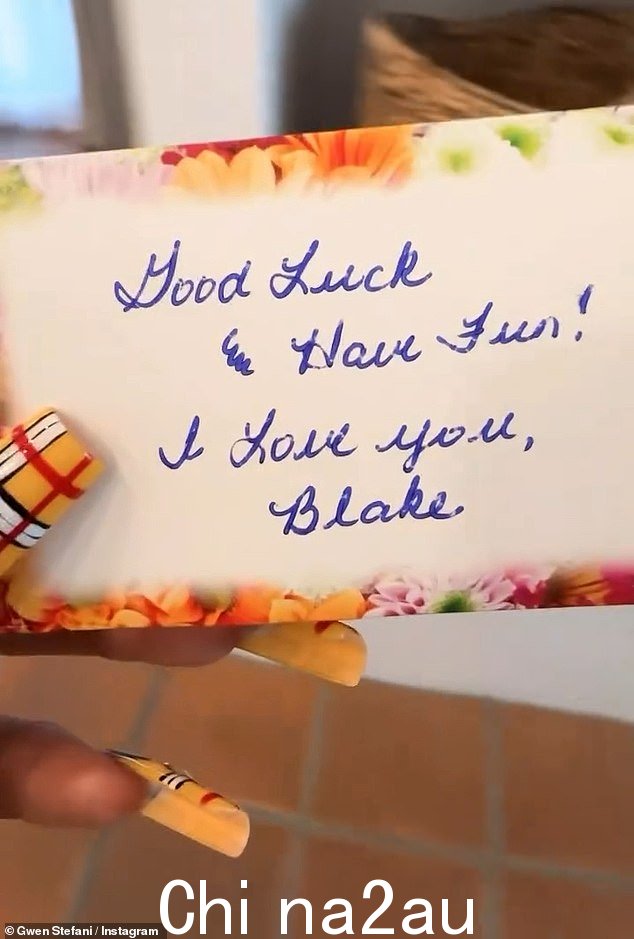 Good Luck
& Have Fun!
I Love you,
Blake
Chi na2au
© Gwen Stefani / Instagram